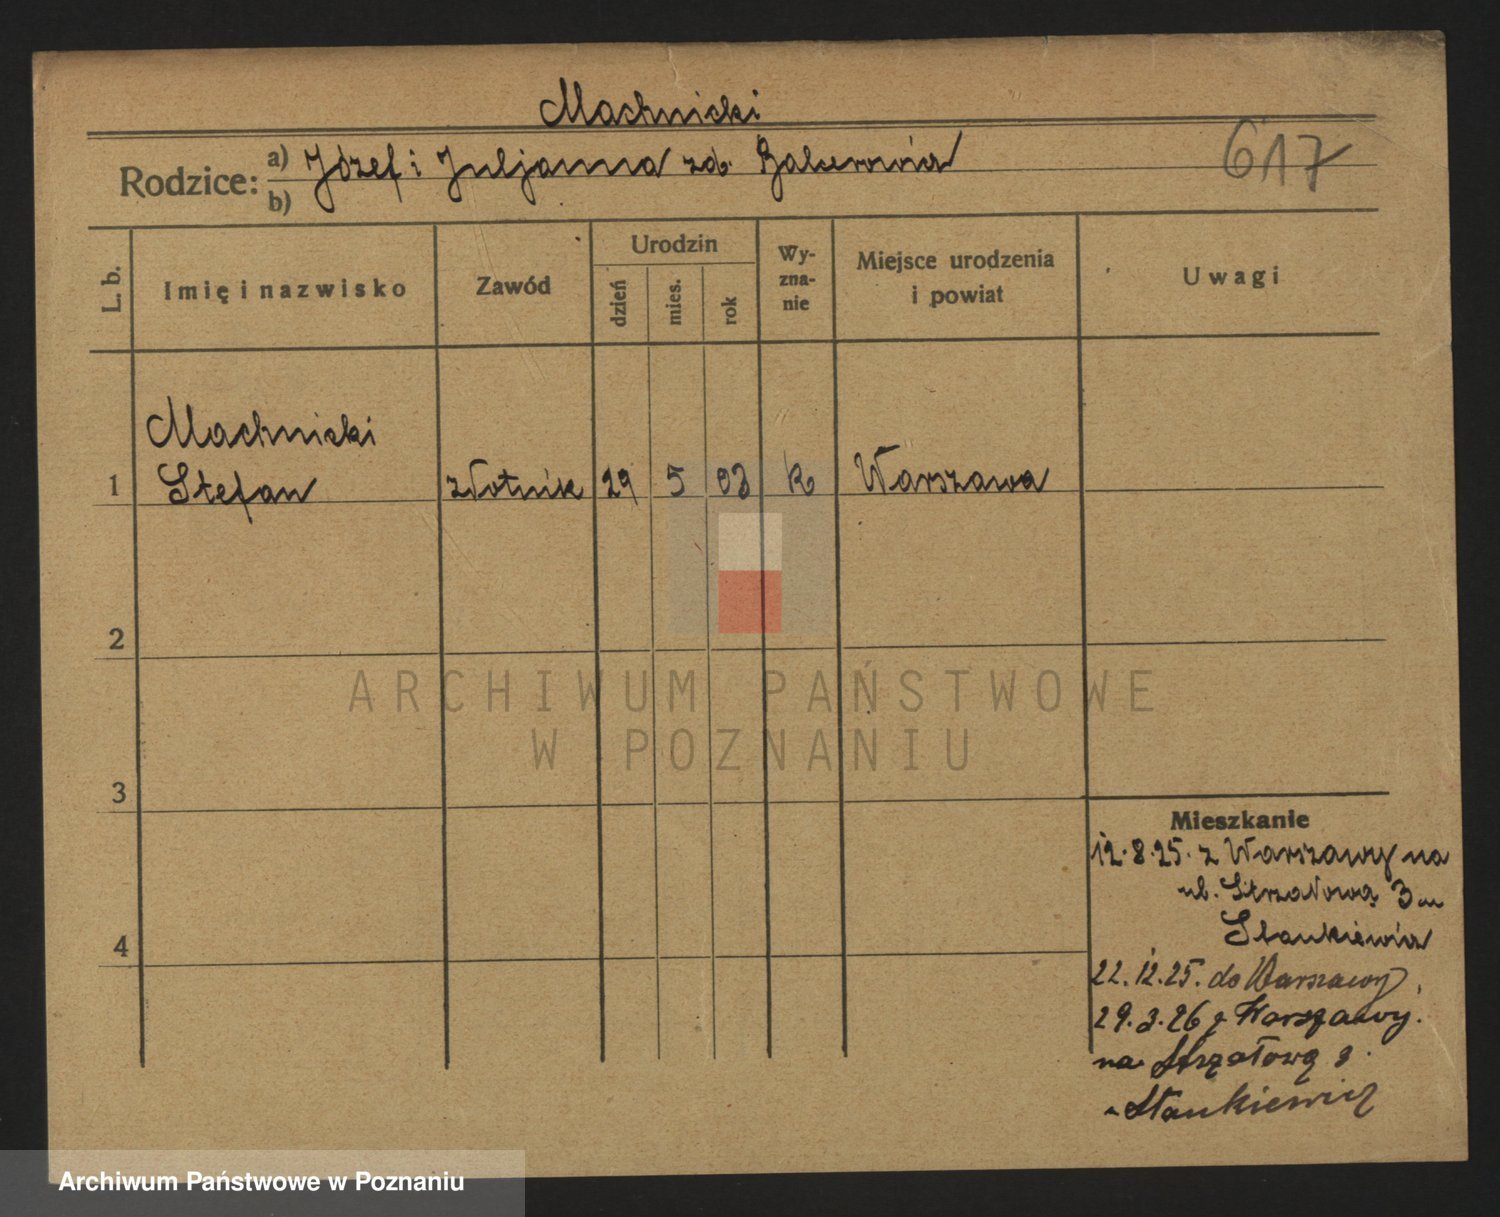 Machnicki
617
Rodzice:
a) Józef i Juljanna zd.
b)
L. b.
Imię i nazwisko
Zawód
Urodzin
dzień
mies.
rok
Wy-
zna-
nie
Miejsce urodzenia
i powiat
Uwagi
Machnicki
1 Stefan złotnik 29 5 03 k Warszawa
2
3
4
Mieszkanie
12.8.25. z Warszawy na
ul. Strzałową 3 m
Stankiewicz
22.12.25. do Warszawy.
29.3.26 z Warszawy.
na Strzałową 3.
Stankiewicz
ARCHIWUM PAŃSTWOWE
W POZNANIU
Archiwum Państwowe w Poznaniu